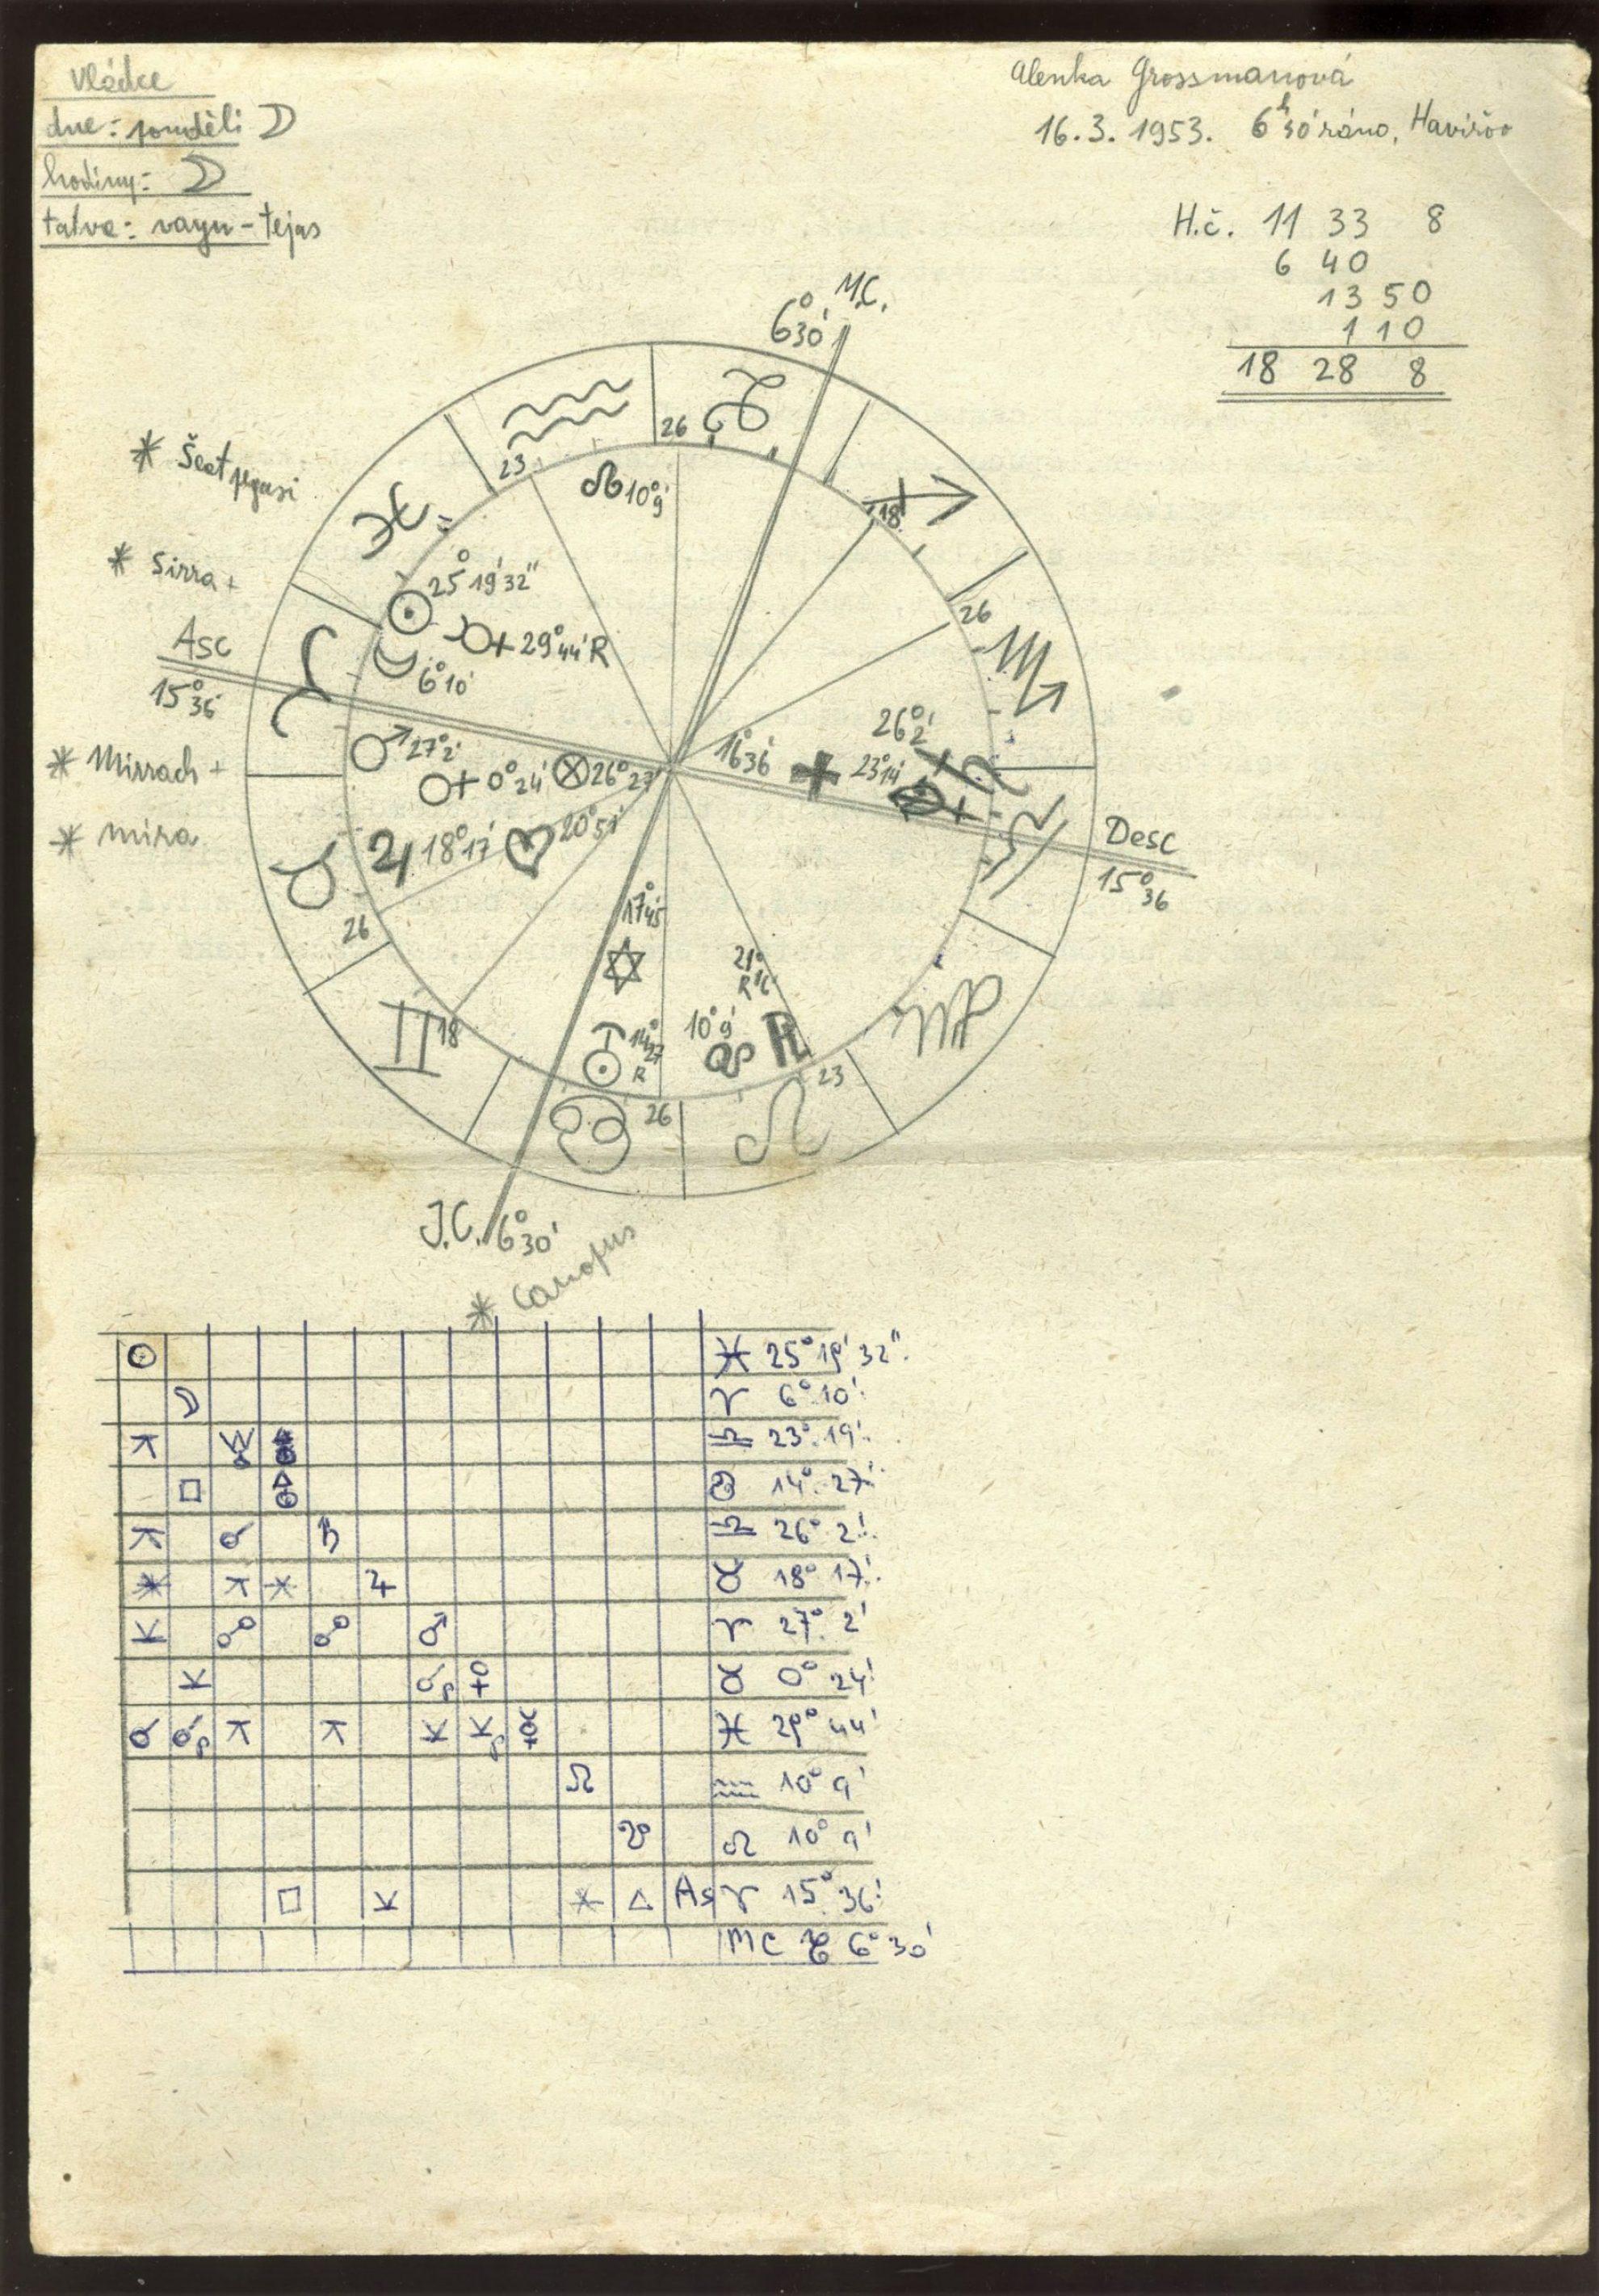 Vládce
dne: pondělí ☽
hodiny: ☽
tatva: vayu - tejas
Alenka Grossmanová
16. 3. 1953. 6h 30 ráno, Havířov
H.č. 11 33 8
6 40
13 50
1 10
18 28 8
M.C.
6° 30'
26
23
18
26
* Šeat pegasi
* Sirra +
Asc
15° 36'
* Mirrach +
* mira
☊ 10° 9'
☉ 25° 19' 32"
29° 44' R
☽ 6° 10'
♂ 27° 2'
♀ 0° 24' ⊗ 26° 27'
♃ 18° 17' 20° 51'
16° 36'
26° 2'
23° 14'
Desc
15° 36
17° 45'
✡
14° 27 R
10° 9'
21° R
26
18
26
23
J.C. 6° 30'
* Canopus
☉ ♓ 25° 19' 32"
☽ ♈ 6° 10'
♎ 23° 19'
□ ♋ 14° 27'
☌ ♄ ♎ 26° 2'
♃ ♉ 18° 17'
☍ ☍ ♂ ♈ 27° 2'
♀ ♉ 0° 24'
☌ ☌ ☿ ♓ 29° 44'
☊ ♒ 10° 9'
☋ ♌ 10° 9'
□ * △ As ♈ 15° 36'
MC ♑ 6° 30'